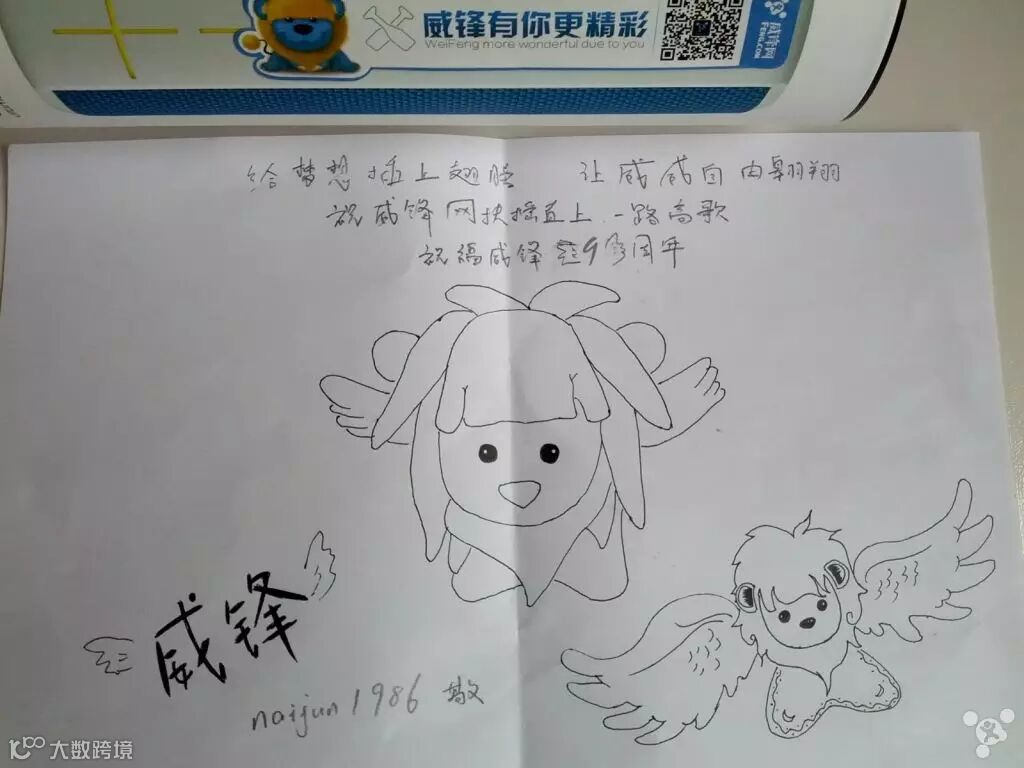 威锋有你更精彩
WeiFeng more wonderful due to you
威锋网
FENG.COM
给梦想插上翅膀 让威威自由翱翔
祝威锋网扶摇直上.一路高歌
祝福威锋 9周年
威锋
naijun1986 敬
大数跨境